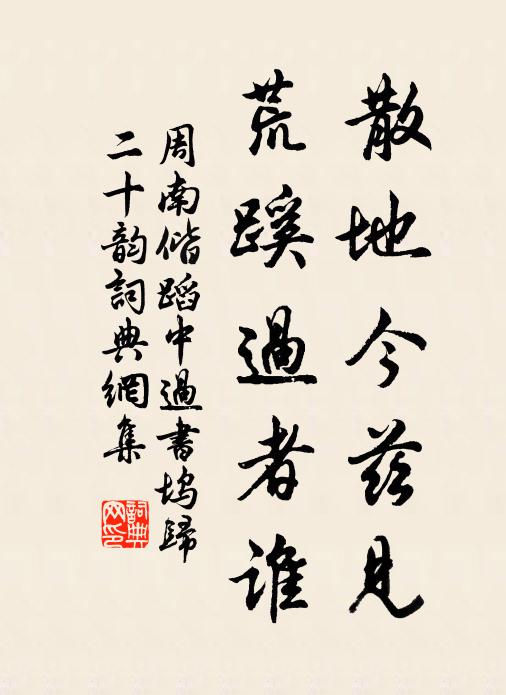 散地今茲見
荒蹊過者誰
周南偕蹈中過書塢歸
二十韵詞典網集
詞典
网印